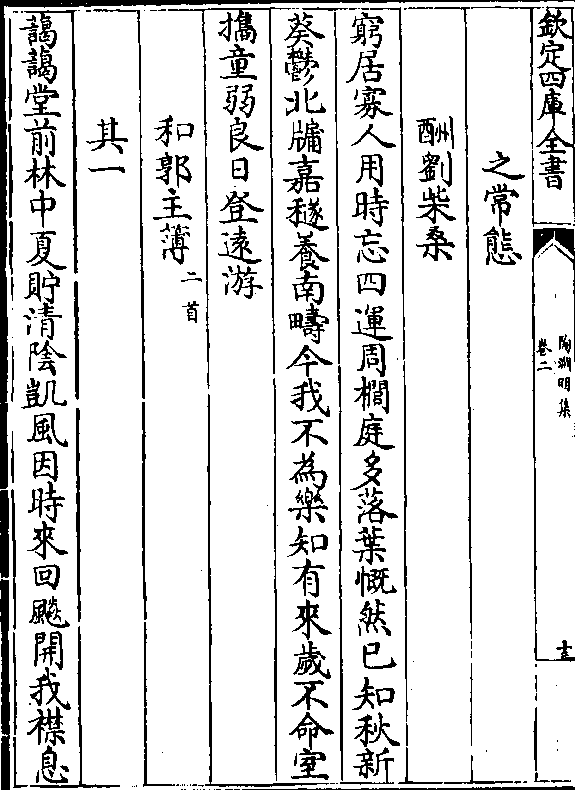 欽定四庫全書
陶淵明集
卷二
十三
之常態
酬劉柴桑
窮居寡人用時忘四運周櫚庭多落葉慨然已知秋新
葵鬱北牖嘉穟養南疇今我不為樂知有來歲不命室
㩗童弱良日登遠游
和郭主簿二首
其一
藹藹堂前林中夏貯清陰凱風因時來回飈開我襟息